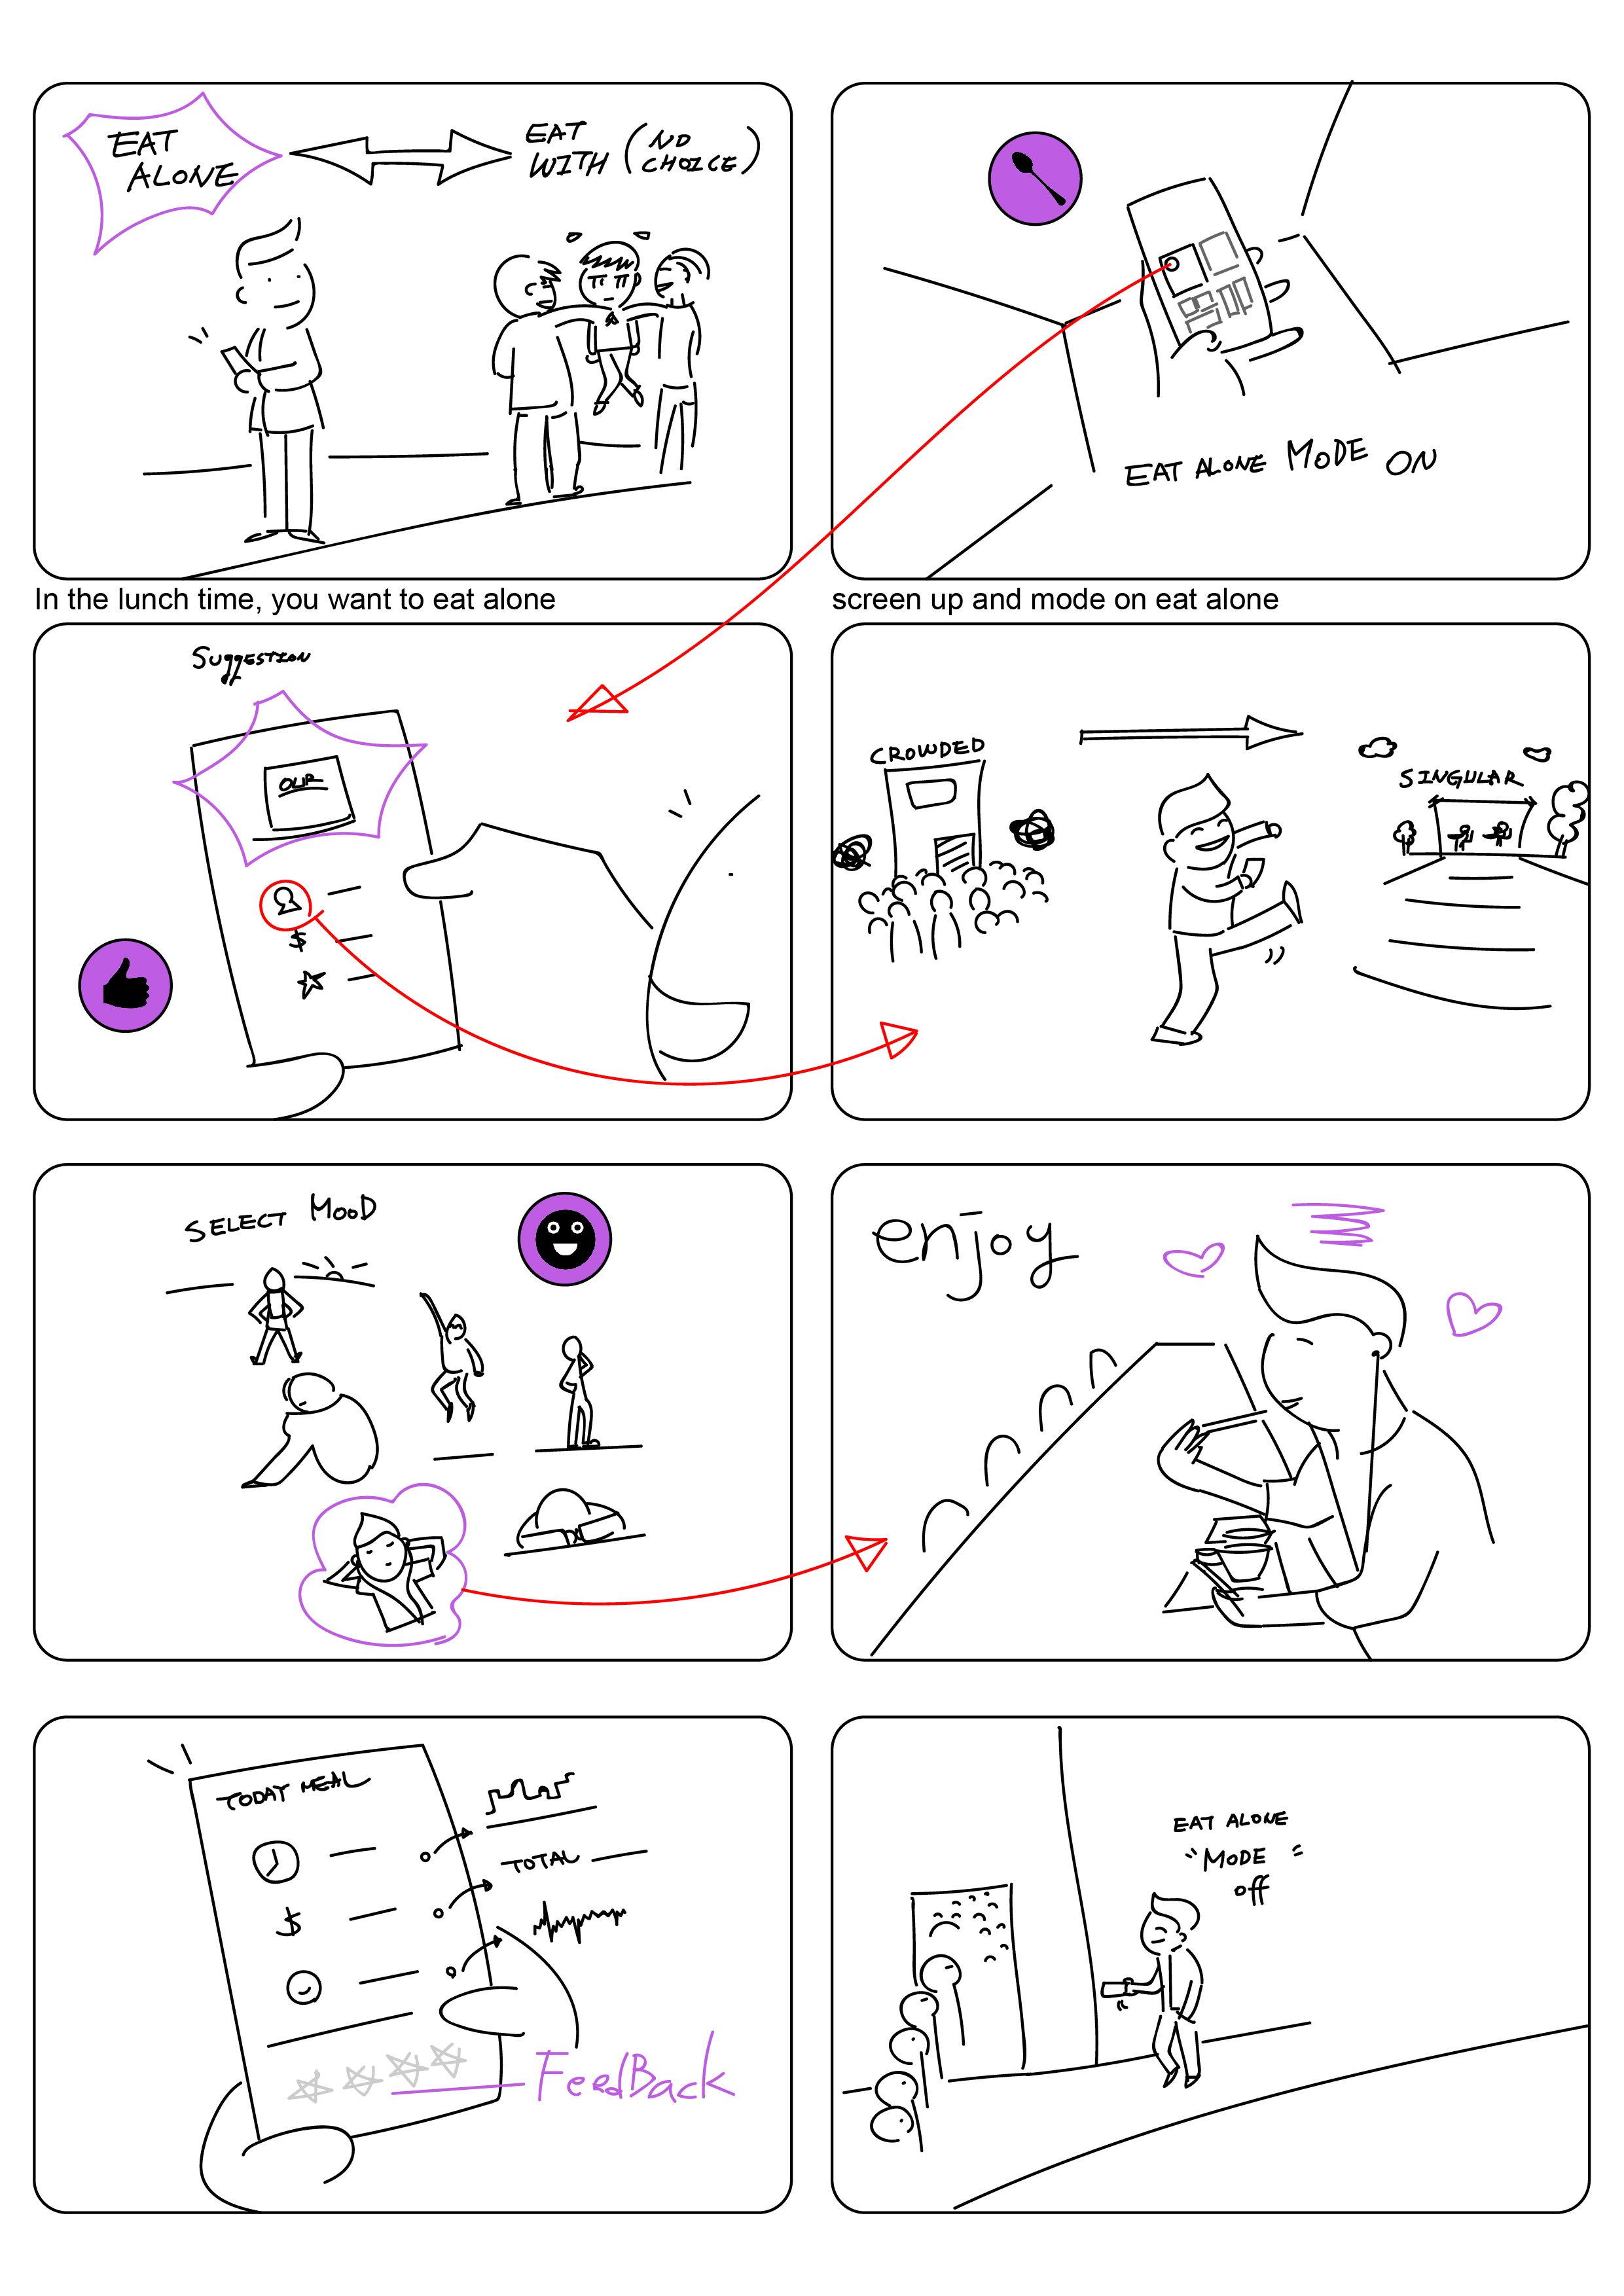 EAT
ALONE
EAT
WITH (NO
CHOICE)
EAT ALONE MODE ON
In the lunch time, you want to eat alone
screen up and mode on eat alone
SUggESTION
OUR
$
CROWDED
SINGULAR
SELECT MooD
enjoy
TODAY MEAL
$
TOTAL
FeedBack
EAT ALONE
"MODE"
off